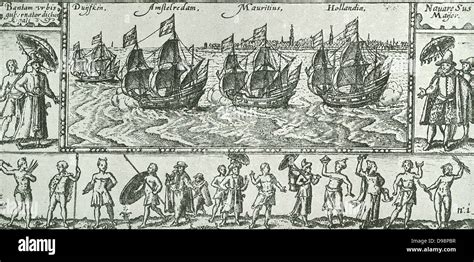 Bantam urbis
gubernator dictus
Duijfken.
Amstelredam,
Mauritius,
Hollandia,
Nauarc Sus
Maior.
alamy
www.alamy.com
D98PBR